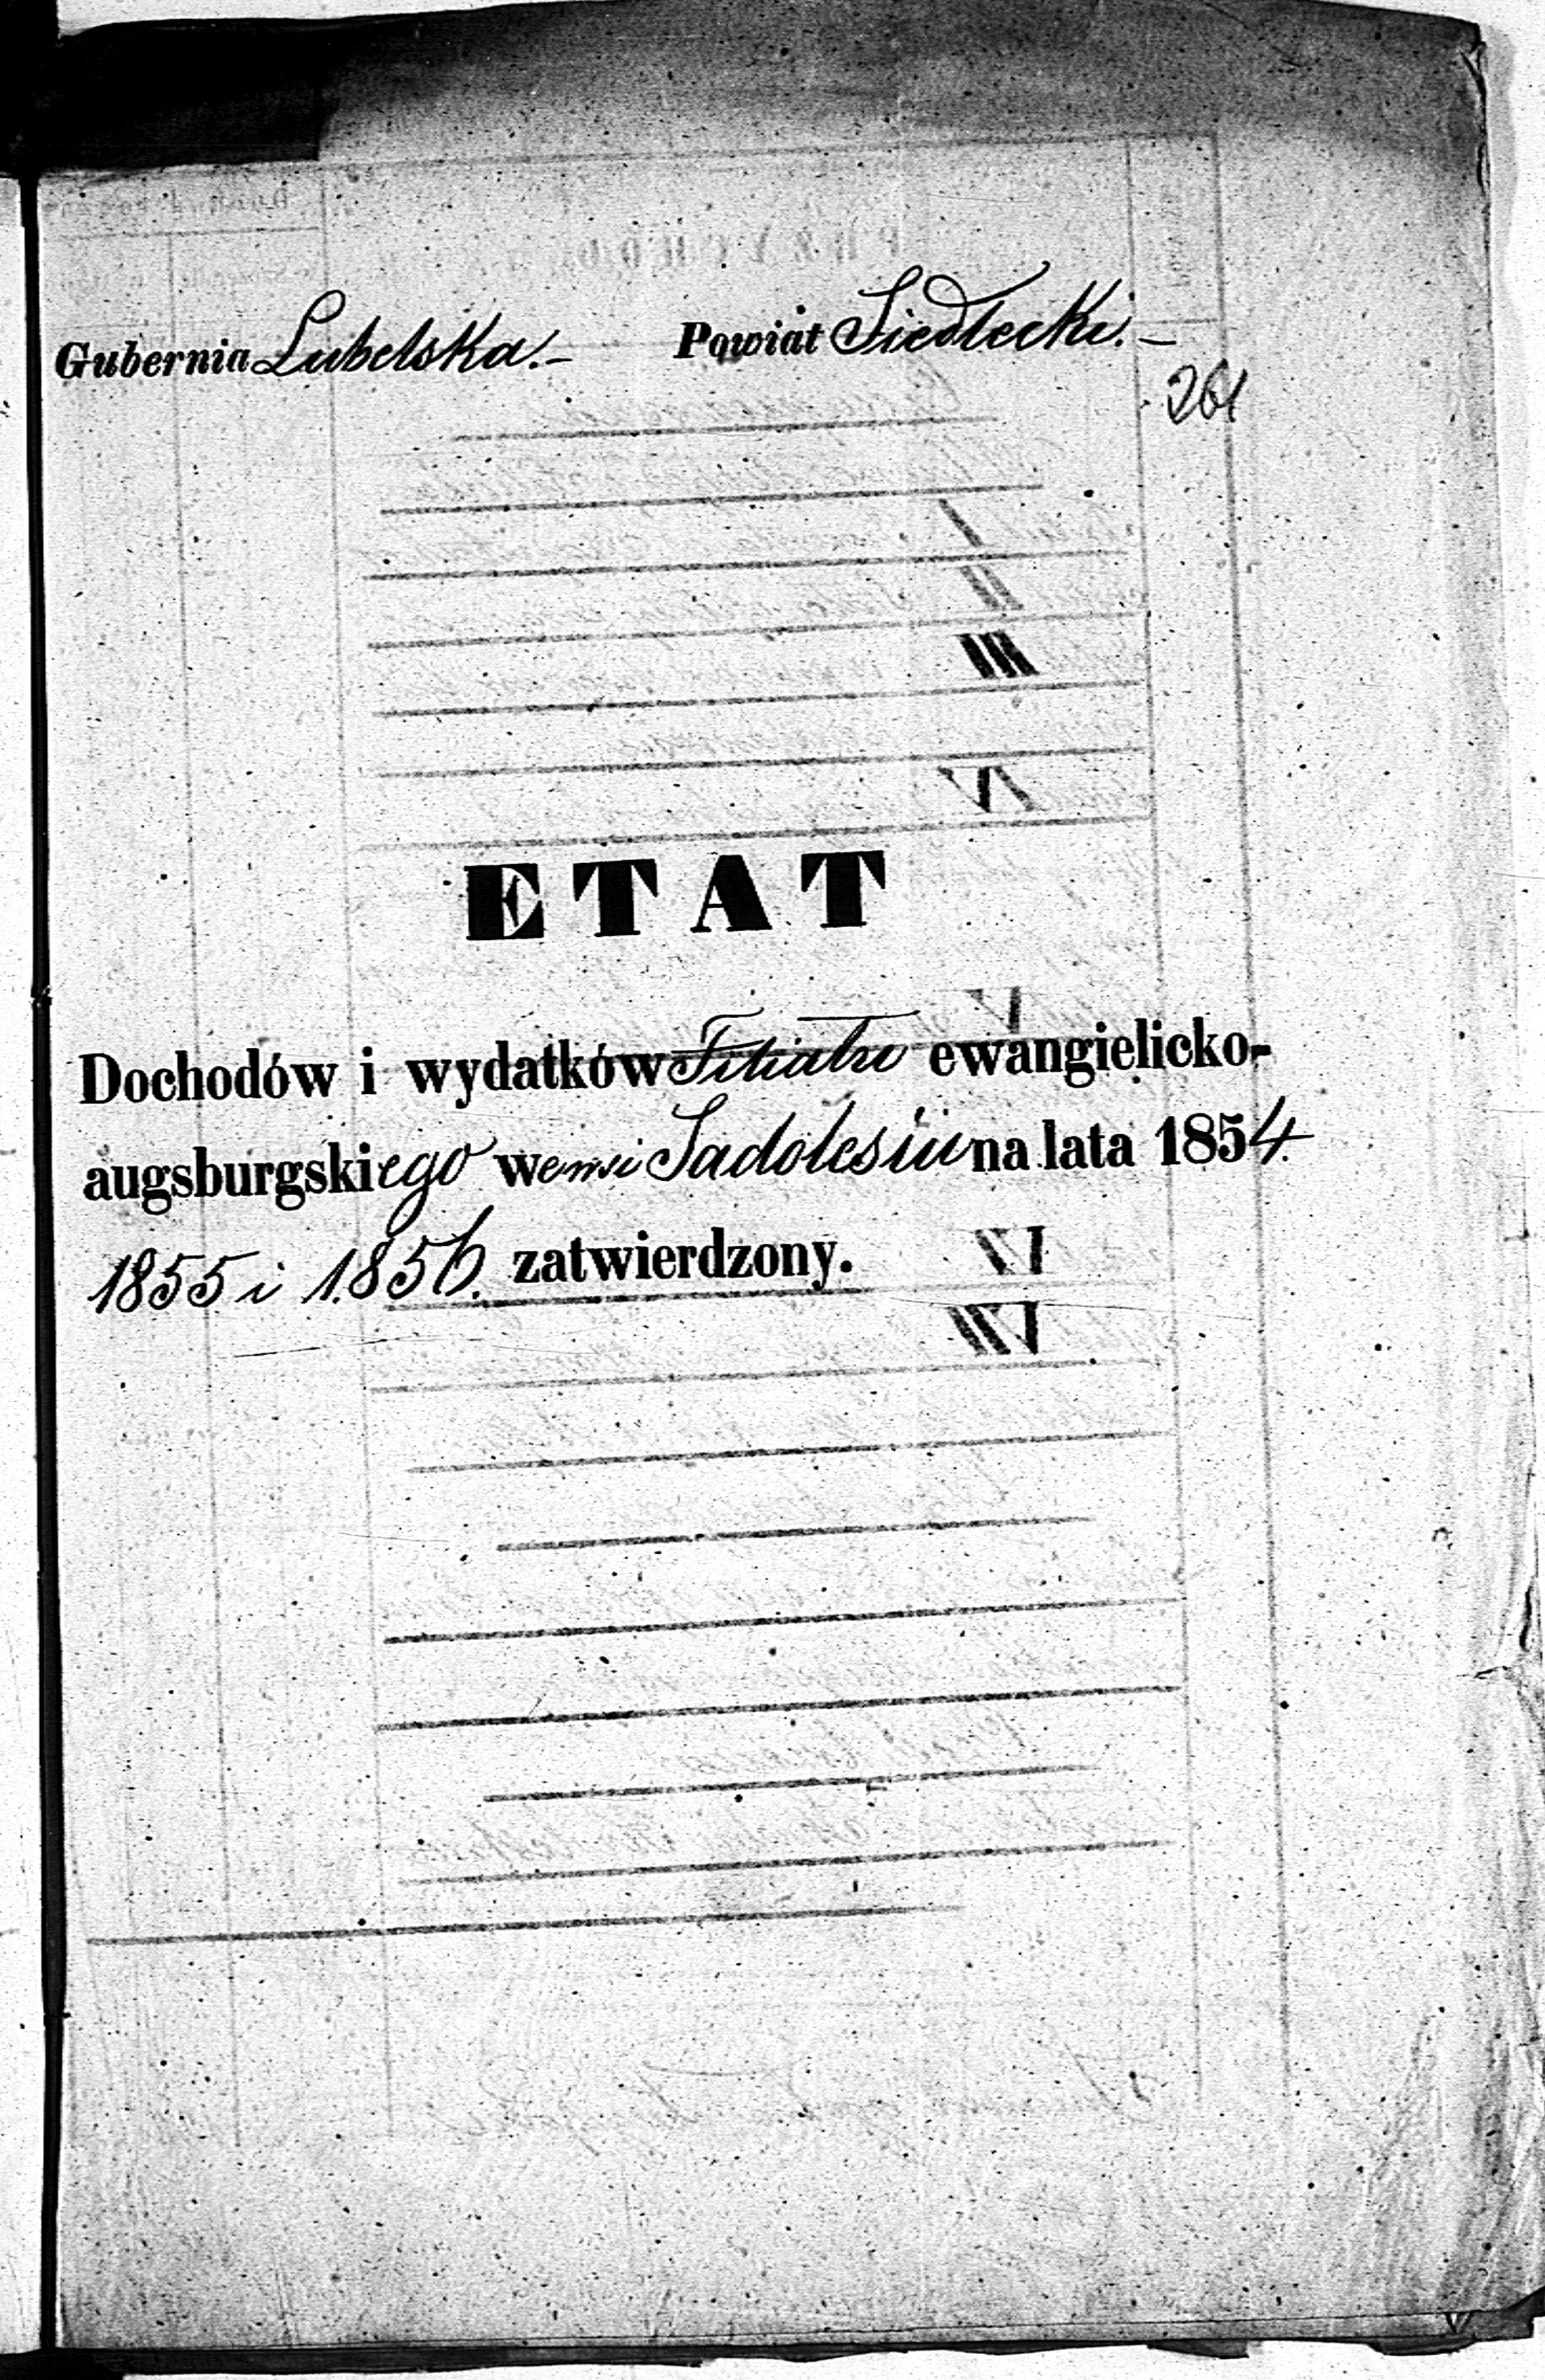 Gubernia Lubelska. – Powiat Siedlecki. –
261
ETAT
Dochodów i wydatków Filiału ewangielicko-
augsburgskiego we wsi Sadolesiu na lata 1854.
1855 i 1856. zatwierdzony.